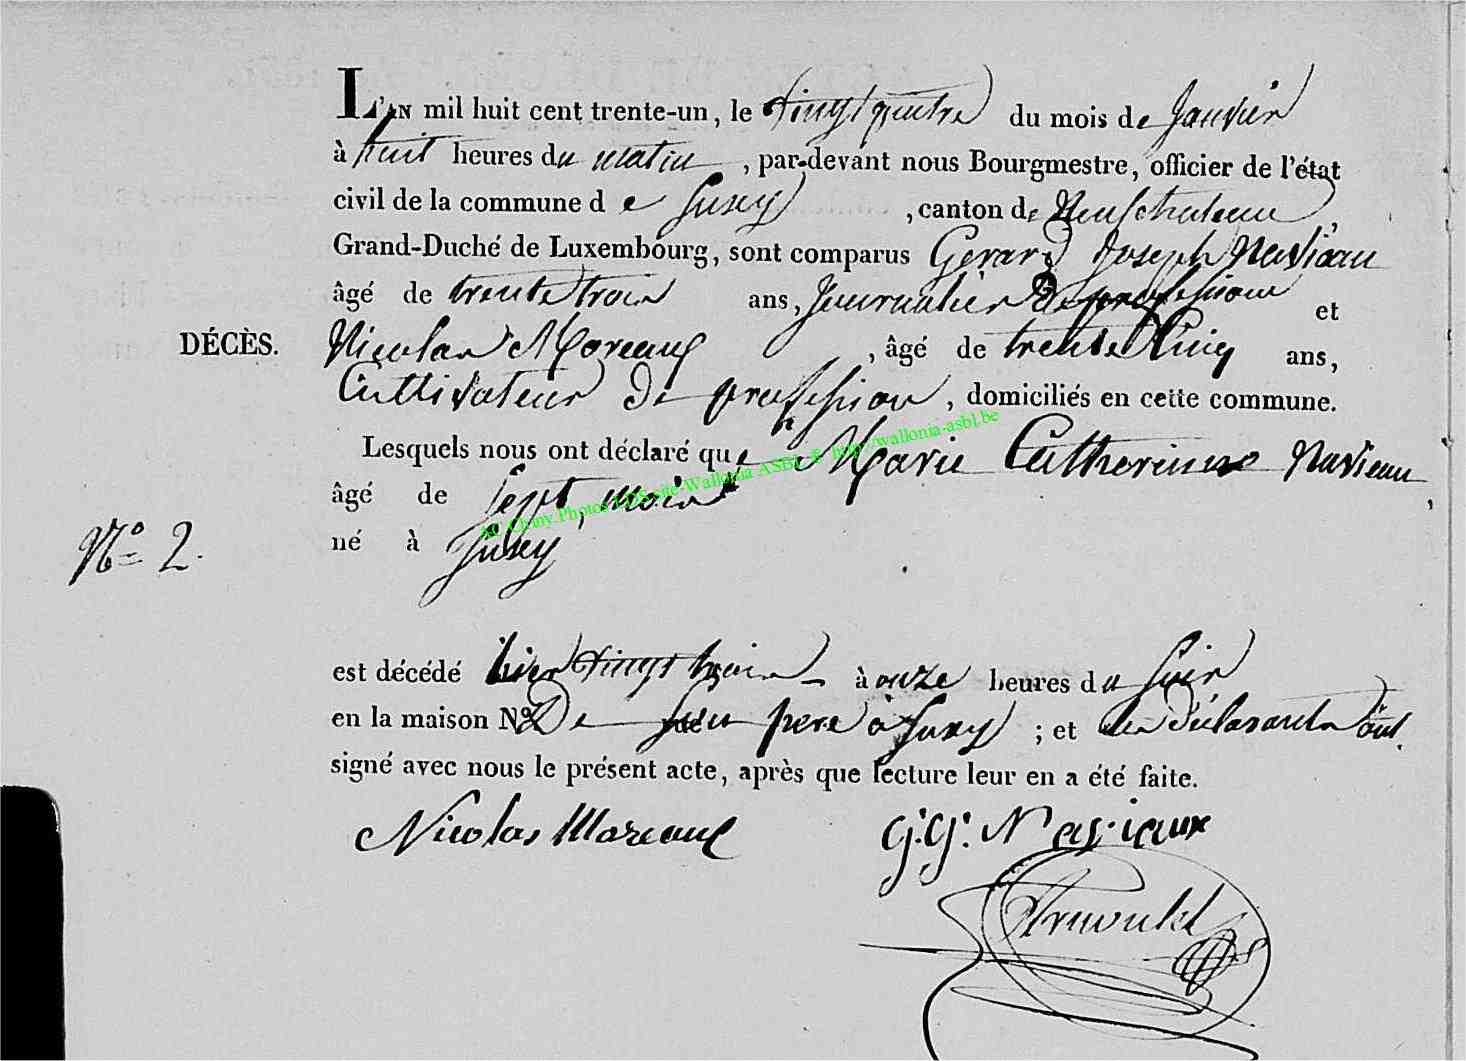 L'AN mil huit cent trente-un, le vingt quatre du mois de Janvier
à huit heures du matin, par-devant nous Bourgmestre, officier de l'état
civil de la commune de Suxy, canton de Neufchateau,
Grand-Duché de Luxembourg, sont comparus Gerard Joseph Naviaux
âgé de trente trois ans, Journalier de profession et
DÉCÈS.
Nicolas Moreaux, âgé de trente Cinq ans,
Cultivateur De profession, domiciliés en cette commune.
Lesquels nous ont déclaré que Marie Catherinne Naviaux
âgé de sept mois,
AC Chiny Photos site Wallonia ASBL & http://wallonia-asbl.be
N° 2.
né à Suxy
est décédé hier vingt trois à onze heures du soir
en la maison N° De son pere à Suxy; et les déclarants ont
signé avec nous le présent acte, après que lecture leur en a été faite.
Nicolas Moreaux
G: J: Naviaux